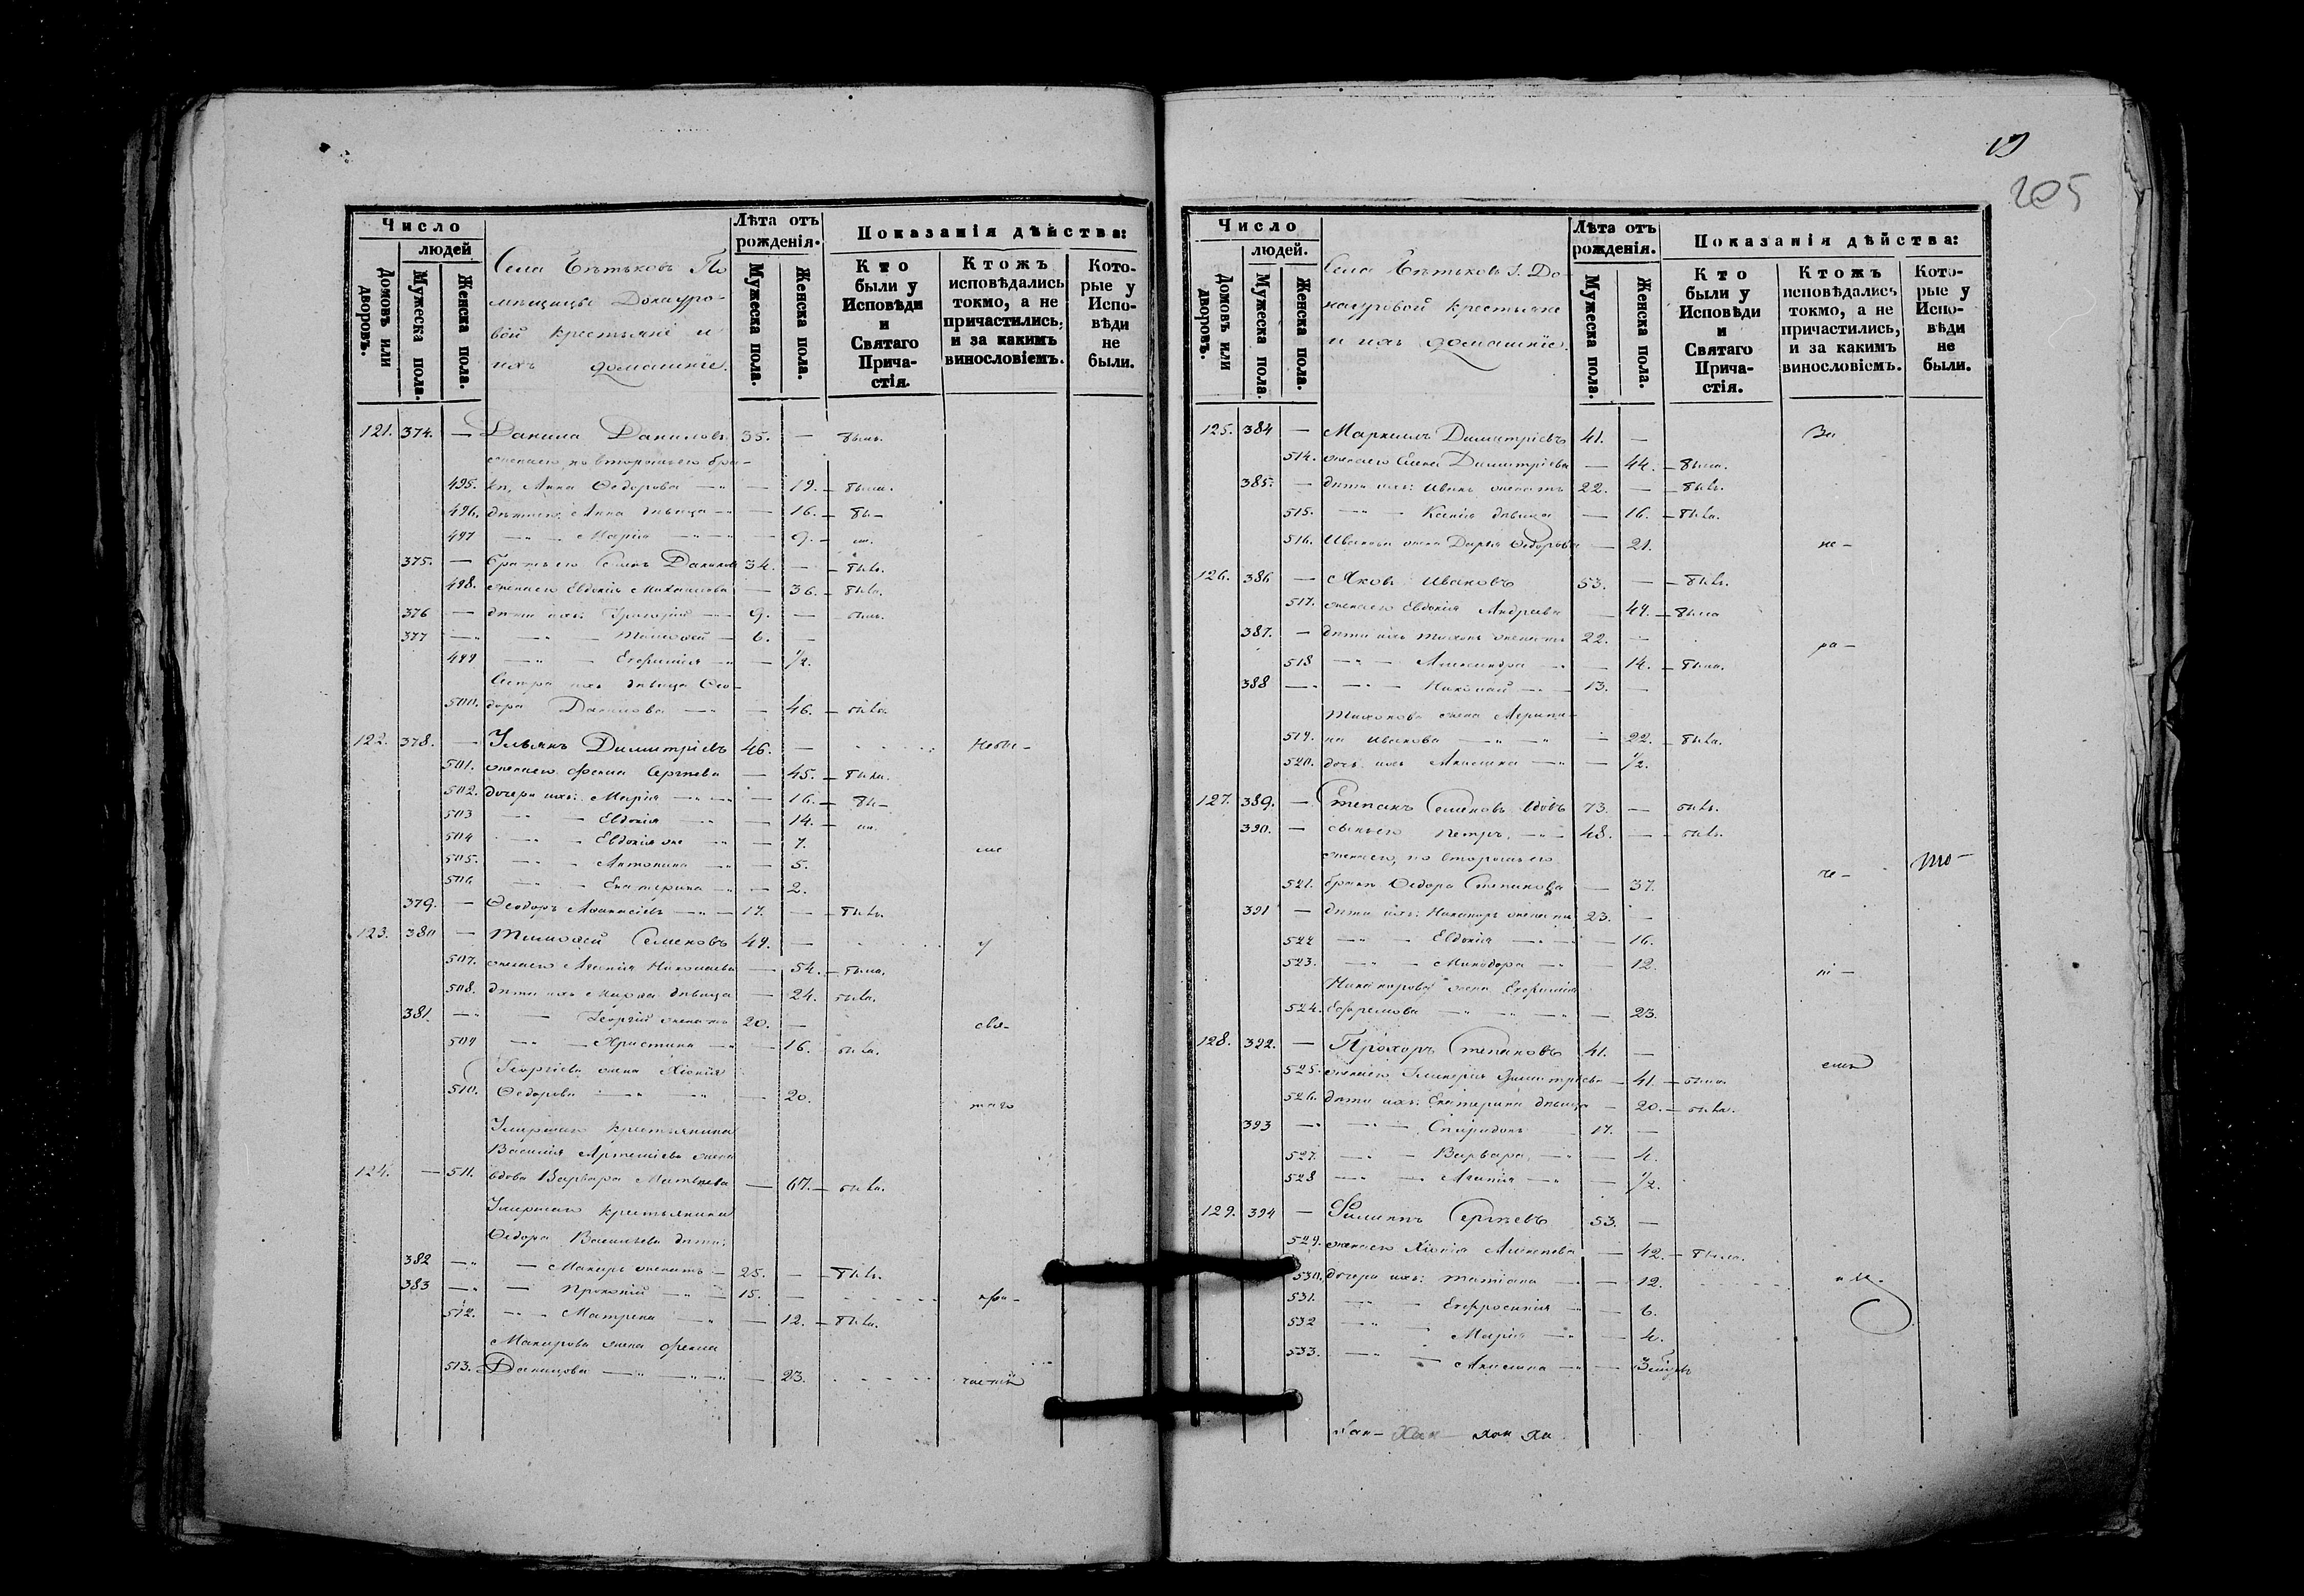 Число
людей
Домовъ или дворовъ.
Мужеска пола.
Женска пола.
Села По
мѣщицы Донауро-
вой крестьяне и
ихъ домашніе.
Лѣта отъ рожденія.
Мужеска пола.
Женска пола.
Показанія дѣйства:
Кто были у Исповѣди и Святаго Причастія.
Ктожъ исповѣдались токмо, а не причастились, и за какимъ винословіемъ.
Которые у Исповѣди не были.
121. 374. — Данила Даниловъ 35. — былъ.
жена его, по второму его бра-
495. кѣ, Анна Ѳедорова — 19. — была.
496. Анна дѣвица — 16. — бы-
497 Марія — 9. — ли.
375. — Братъ его Данилов 34. — — былъ.
498. жена его Евдокія Михаилова — 36. — была.
376 — дѣти ихъ: Григорій 9. — былъ.
377 Тимоѳей — 6. —
499 Евфимія — 1/2.
Сестра ихъ дѣвица Ѳео-
500. дора Данилова — 46. — была
122. 378. — Димитріевъ 46. — небы-
501. жена его Ѳекла Сергѣева — 45. — была.
502. дочери ихъ: Марія — 16. — бы-
503 Евдокія — 14. — ли.
504 Евдокія же — 7. ли
505. Антонина — 5.
506 Екатерина — 2.
379. — Ѳеодоръ Аѳанасіевъ 17. — — былъ.
123. 380 — Тимоѳей Семеновъ 49. — у
507. жена его Агапія Николаева — 54. — была.
508. дѣти ихъ Марѳа дѣвица — 24. была.
381. — Георгій женатъ 20. — свя-
509 Христина — 16. была.
Георгіева жена Хіонія
510. Ѳедорова — 20. таго
Умершаго крестьянина
Василія Артемьева жена
124. — 511. вдова Варвара Матвѣева — 67. — была.
Умершаго крестьянина
Ѳедора Васильева дѣти:
382 — Макаръ женатъ — 25. — — былъ.
383 — Прокопій 15. — при-
512. Матрена — 12. — была.
Макарова жена Ѳекла
513. Данилова — 23. частія
19
205
Число
людей.
Домовъ или дворовъ.
Мужеска пола.
Женска пола.
Села Г. До-
науровой крестьяне
и ихъ домашніе.
Лѣта отъ рожденія.
Мужеска пола.
Женска пола.
Показанія дѣйства:
Кто были у Исповѣди и Святаго Причастія.
Ктожъ исповѣдались токмо, а не причастились, и за какимъ винословіемъ.
Которые у Исповѣди не были.
125. 384 — Маркеллъ Димитріевъ 41. — За
514. жена его Елена Димитріева — 44. — была.
385. — дѣти ихъ: Иванъ женатъ 22. — — былъ.
515. Ксенія дѣвица — 16. — была.
516. Иванова жена Дарья Ѳедорова — 21. не-
126. 386 — Яковъ Ивановъ 53. — — былъ.
517. жена его Евдокія Андреева — 49. — была
387. — дѣти ихъ Тихонъ женатъ 22. — ра-
518 Александра — 14. — была.
388 — Николай 13. —
Тихонова жена Агрипи-
519. на Иванова — 22. — была.
520. дочь ихъ Акилина — 1/2.
127. 389. — Степанъ Семеновъ вдовъ 73. — былъ.
390. — сынъ его Петръ 48. — былъ.
жена его, по второму его
521. бракѣ Ѳедора Степанова — 37. че- то-
391 — дѣти ихъ: Никаноръ женатъ 23. —
522 Евдокія — 16.
523. Минодора — 12. ні-
Никанорова жена Евфимія
524. Ефремова — 23.
128. 392. — Прохоръ Степановъ 41. — емъ
525. жена его Гликерія Димитріева — 41. — была
526. дѣти ихъ: Екатерина дѣвица — 20. — была.
393 — Спиридонъ 17. —
527. Варвара — 4.
528 Агапія — 1/2.
129. 394 — Филиппъ Сергѣевъ 53. —
529. жена его Хіонія Алексѣева — 42. — была.
530. дочери ихъ: Татіана — 12.
531. Евфросинія — 6.
532 Марія — 4.
533. Акилина —